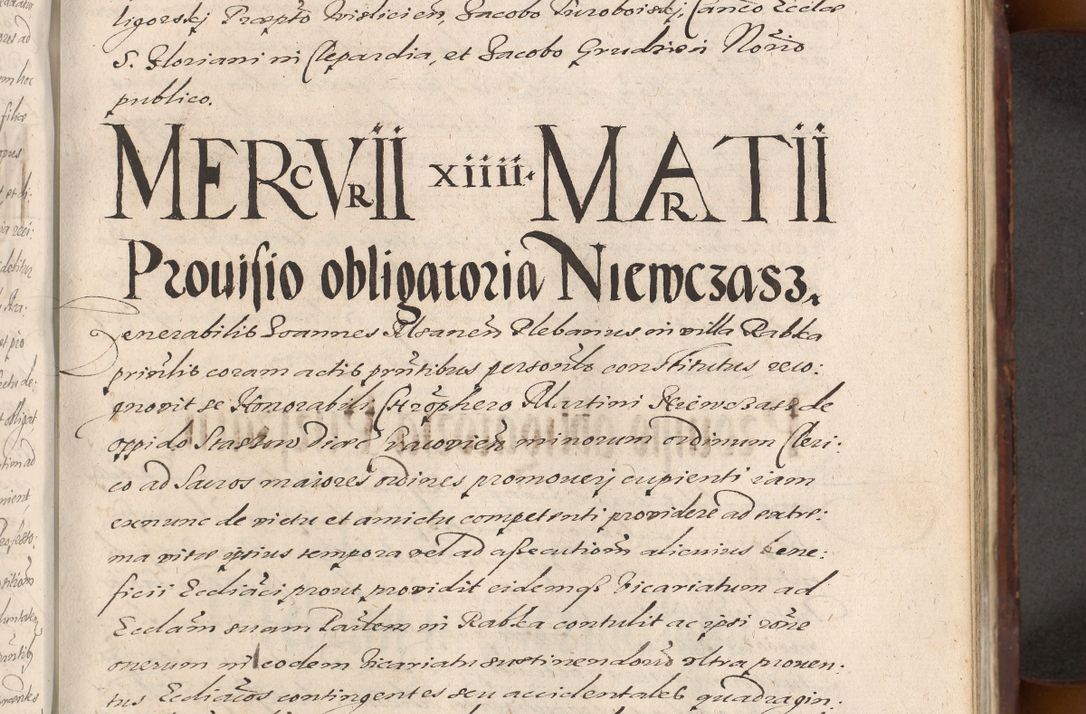 ligorskj Præpto Vislicien, Jacobo Turoboiskj, Canco Ecclæ
S. Floriani in Clepardia, et Jacobo Grudzien Norio
publico.
MERCVRII XIIII. MARTII
Prouisio obligatoria Niewczasz.
Venerabilis Joannes Plebanus in villa Rabka
prinlis coram actis prntibus personlr constitutus, reco:
gnovit se Honorabili Chrophero Martini Niewczasz de
oppido Staszow Diæc Cracovien minorum ordinum Cleri:
co ad Sacros maiores ordines promouerj cupienti iam
exnunc de victu et amictu competenti providere ad extre:
ma vitæ ipsius tempora vel ad assecutionem alicuius bene:
ficii Ecclici prout providit eidemq Vicariatum ad
Ecclam suam Parlem in Rabka contulit ac ipsi rone
onerum in eodem Vicariatu sustinendorum ultra proven:
tus Eccliacos contingentes seu accidentales quadragin: